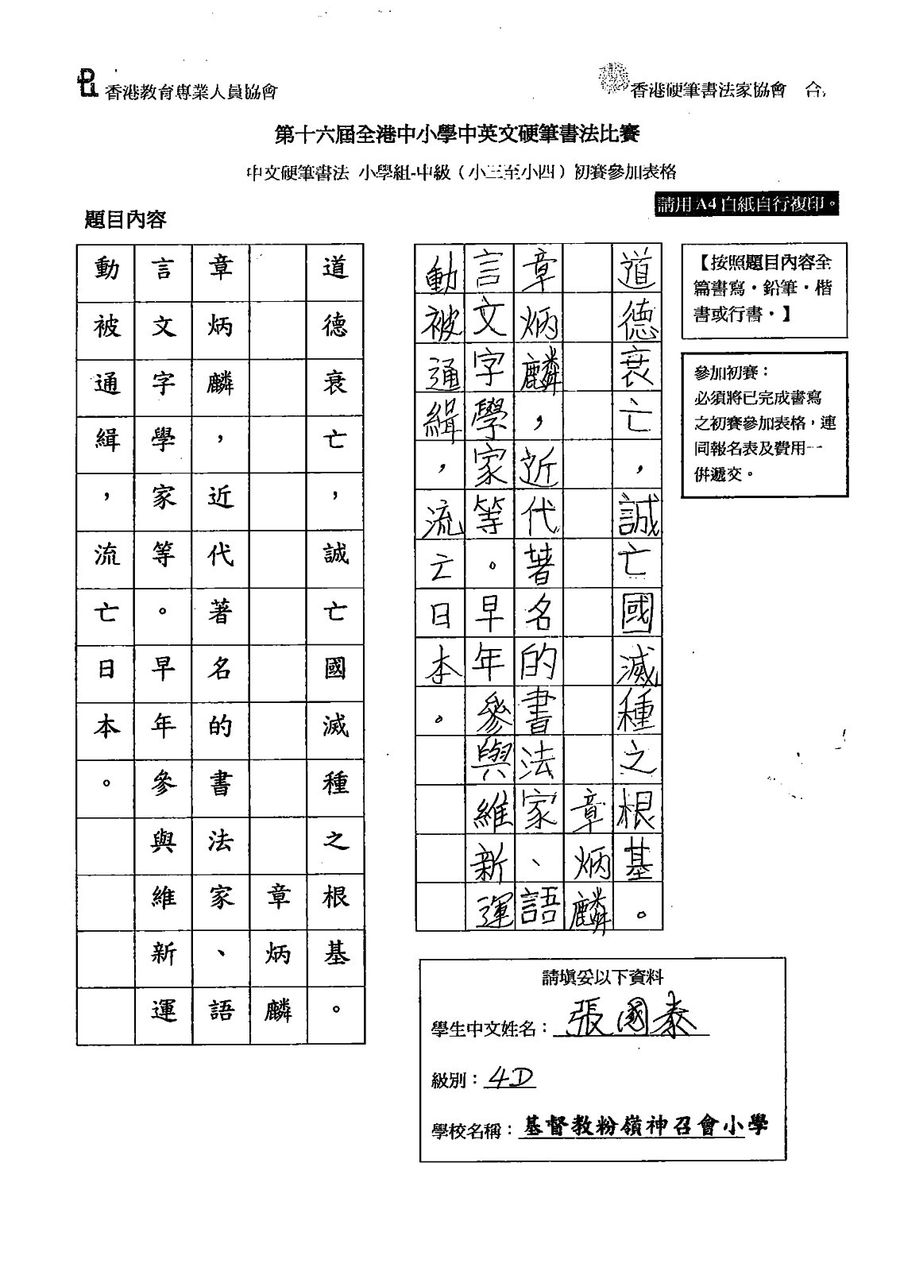 香港教育專業人員協會
香港硬筆書法家協會 合
第十六屆全港中小學中英文硬筆書法比賽
中文硬筆書法 小學組-中級（小三至小四）初賽參加表格
請用 A4 白紙自行複印。
題目內容
道德衰亡，誠亡國滅種之根基。
章炳麟
章炳麟，近代著名的書法家、語
言文字學家等。早年參與維新運
動被通緝，流亡日本。
道德衰亡，誠亡國滅種之根基。
章炳麟
章炳麟，近代著名的書法家、語
言文字學家等。早年參與維新運
動被通緝，流亡日本。
【按照題目內容全
篇書寫・鉛筆・楷
書或行書・】
參加初賽：
必須將已完成書寫
之初賽參加表格，連
同報名表及費用一
併遞交。
請填妥以下資料
學生中文姓名：張國泰
級別：4D
學校名稱：基督教粉嶺神召會小學